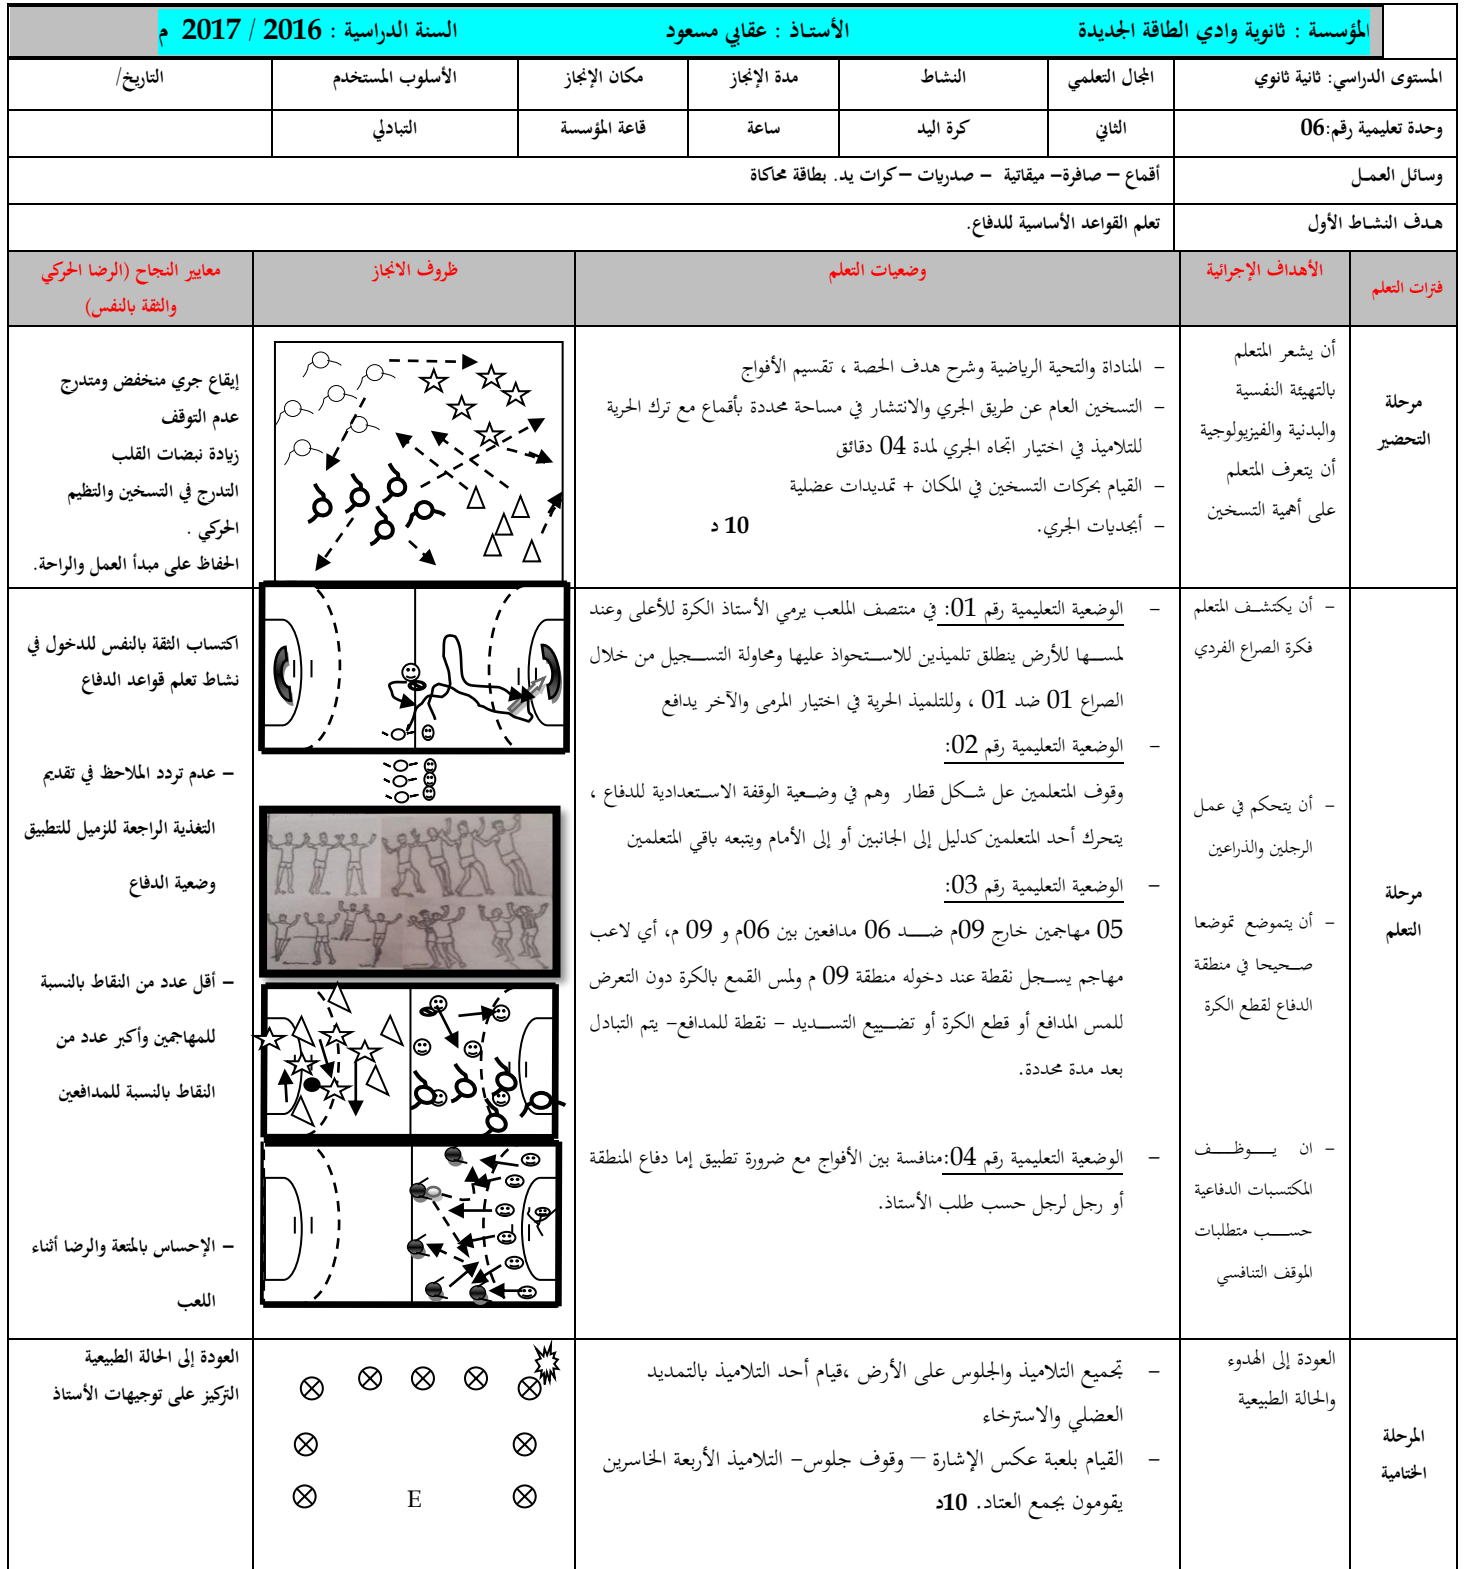 المؤسسة : ثانوية وادي الطاقة الجديدة الأستاذ : عقابي مسعود السنة الدراسية : 2016 / 2017 م
المستوى الدراسي: ثانية ثانوي المجال التعلمي النشاط مدة الإنجاز مكان الإنجاز الأسلوب المستخدم التاريخ/
وحدة تعليمية رقم:06 الثاني كرة اليد ساعة قاعة المؤسسة التبادلي
وسائل العمـل أقماع – صافرة– ميقاتية – صدريات –كرات يد. بطاقة محاكاة
هـدف النشـاط الأول تعلم القواعد الأساسية للدفاع.
فترات التعلم الأهداف الإجرائية وضعيات التعلم ظروف الانجاز معايير النجاح (الرضا الحركي
والثقة بالنفس)
مرحلة
التحضير
أن يشعر المتعلم
بالتهيئة النفسية
والبدنية والفيزيولوجية
أن يتعرف المتعلم
على أهمية التسخين
– المناداة والتحية الرياضية وشرح هدف الحصة ، تقسيم الأفواج
– التسخين العام عن طريق الجري والانتشار في مساحة محددة بأقماع مع ترك الحرية
للتلاميذ في اختيار اتجاه الجري لمدة 04 دقائق
– القيام بحركات التسخين في المكان + تمديدات عضلية
– أبجديات الجري. 10 د
إيقاع جري منخفض ومتدرج
عدم التوقف
زيادة نبضات القلب
التدرج في التسخين والتظيم
الحركي .
الحفاظ على مبدأ العمل والراحة.
مرحلة
التعلم
– أن يكتشـف المتعلم
فكرة الصراع الفردي
– أن يتحكم في عمـل
الرجلين والذراعين
– أن يتموضع تموضعا
صـحيحا في منطقة
الدفاع لقطع الكرة
– ان يــوظــف
المكتسبات الدفاعية
حســب متطلبات
الموقف التنافسي
– الوضعية التعليمية رقم 01: في منتصف الملعب يرمي الأستاذ الكرة للأعلى وعند
لمسـها للأرض ينطلق تلميذين للاسـتحواذ عليها ومحاولة التسـجيل من خلال
الصراع 01 ضد 01 ، وللتلميذ الحرية في اختيار المرمى والآخر يدافع
– الوضعية التعليمية رقم 02:
وقوف المتعلمين عل شـكل قطار وهم في وضـعية الوقفة الاسـتعدادية للدفاع ،
يتحرك أحد المتعلمين كدليل إلى الجانبين أو إلى الأمام ويتبعه باقي المتعلمين
– الوضعية التعليمية رقم 03:
05 مهاجمين خارج 09م ضــد 06 مدافعين بين 06م و 09 م، أي لاعب
مهاجم يسـجل نقطة عند دخوله منطقة 09 م ولمس القمع بالكرة دون التعرض
للمس المدافع أو قطع الكرة أو تضـييع التسـديد – نقطة للمدافع– يتم التبادل
بعد مدة محددة.
– الوضعية التعليمية رقم 04:منافسة بين الأفواج مع ضرورة تطبيق إما دفاع المنطقة
أو رجل لرجل حسب طلب الأستاذ.
اكتساب الثقة بالنفس للدخول في
نشاط تعلم قواعد الدفاع
– عدم تردد الملاحظ في تقديم
التغذية الراجعة للزميل للتطبيق
وضعية الدفاع
– أقل عدد من النقاط بالنسبة
للمهاجمين وأكبر عدد من
النقاط بالنسبة للمدافعين
– الإحساس بالمتعة والرضا أثناء
اللعب
المرحلة
الختامية
العودة إلى الهدوء
والحالة الطبيعية
– تجميع التلاميذ والجلوس على الأرض ،قيام أحد التلاميذ بالتمديد
العضلي والاسترخاء
– القيام بلعبة عكس الإشارة – وقوف جلوس– التلاميذ الأربعة الخاسرين
يقومون بجمع العتاد. 10د
E
العودة إلى الحالة الطبيعية
التركيز على توجيهات الأستاذ